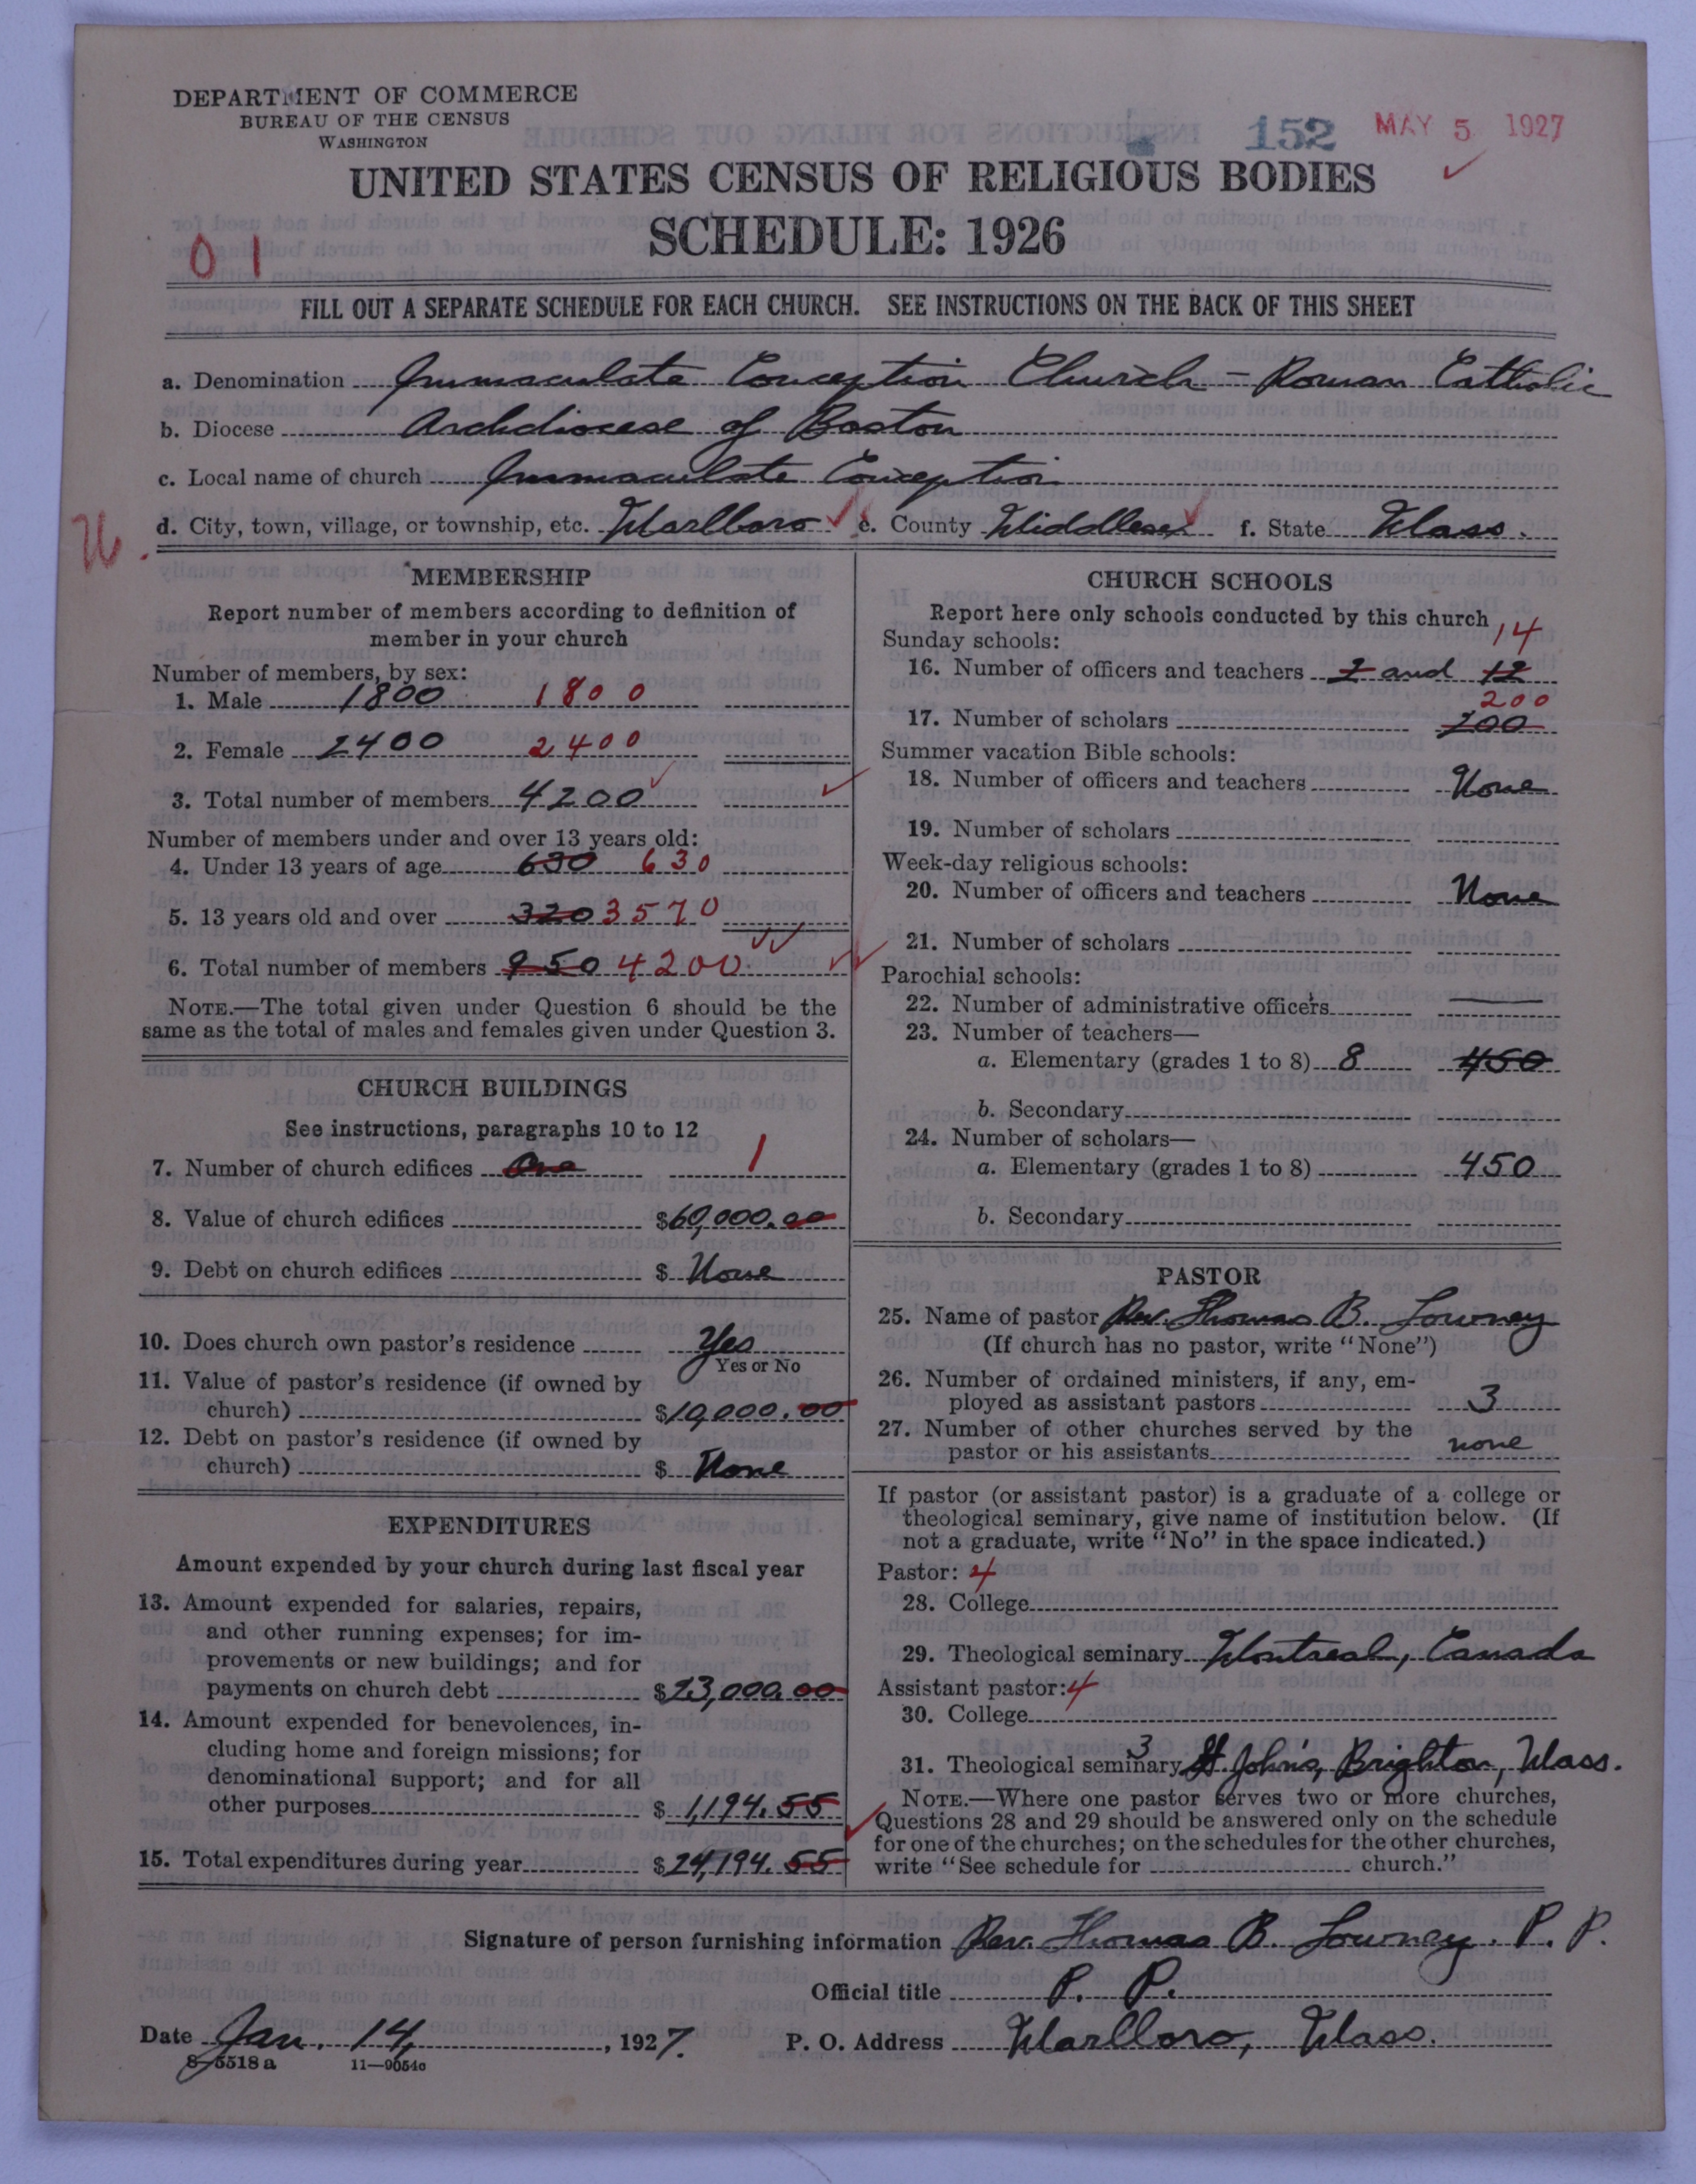 DEPARTMENT OF COMMERCE
BUREAU OF THE CENSUS
WASHINGTON
152 MAY 5 1927
UNITED STATES CENSUS OF RELIGIOUS BODIES
SCHEDULE: 1926
01
FILL OUT A SEPARATE SCHEDULE FOR EACH CHURCH. SEE INSTRUCTIONS ON THE BACK OF THIS SHEET
a. Denomination Immaculate Conception Church - Roman Catholic
b. Diocese Archdiocese of Boston
c. Local name of church Immaculate Conception
d. City, town, village, or township, etc. Marlboro e. County Middlesex f. State Mass.
MEMBERSHIP
Report number of members according to definition of
member in your church
Number of members, by sex:
1. Male 1800 1800
2. Female 2400 2400
3. Total number of members 4200
Number of members under and over 13 years old:
4. Under 13 years of age 630 630
5. 13 years old and over 320 3570
6. Total number of members 950 4200
NOTE.—The total given under Question 6 should be the
same as the total of males and females given under Question 3.
CHURCH BUILDINGS
See instructions, paragraphs 10 to 12
7. Number of church edifices One 1
8. Value of church edifices $60,000.00
9. Debt on church edifices $ None
10. Does church own pastor's residence Yes
Yes or No
11. Value of pastor's residence (if owned by
church) $10,000.00
12. Debt on pastor's residence (if owned by
church) $ None
EXPENDITURES
Amount expended by your church during last fiscal year
13. Amount expended for salaries, repairs,
and other running expenses; for im-
provements or new buildings; and for
payments on church debt $23,000.00
14. Amount expended for benevolences, in-
cluding home and foreign missions; for
denominational support; and for all
other purposes $1,194.55
15. Total expenditures during year $24,194.55
CHURCH SCHOOLS
Report here only schools conducted by this church
Sunday schools:
14
16. Number of officers and teachers 2 and 12
200
17. Number of scholars 200
Summer vacation Bible schools:
18. Number of officers and teachers None
19. Number of scholars
Week-day religious schools:
20. Number of officers and teachers None
21. Number of scholars
Parochial schools:
22. Number of administrative officers
23. Number of teachers—
a. Elementary (grades 1 to 8) 8 450
b. Secondary
24. Number of scholars—
a. Elementary (grades 1 to 8) 450
b. Secondary
PASTOR
25. Name of pastor Rev. Thomas B. Lowney
(If church has no pastor, write "None")
26. Number of ordained ministers, if any, em-
ployed as assistant pastors 3
27. Number of other churches served by the
pastor or his assistants none
If pastor (or assistant pastor) is a graduate of a college or
theological seminary, give name of institution below. (If
not a graduate, write "No" in the space indicated.)
Pastor: 4
28. College
29. Theological seminary Montreal, Canada
Assistant pastor: 4
30. College
3
31. Theological seminary St. John's, Brighton, Mass.
NOTE.—Where one pastor serves two or more churches,
Questions 28 and 29 should be answered only on the schedule
for one of the churches; on the schedules for the other churches,
write "See schedule for church."
Signature of person furnishing information Rev. Thomas B. Lowney. P. P.
Official title P. P.
Date Jan. 14, 1927. P. O. Address Marlboro, Mass.
8-5518a 11—9054c